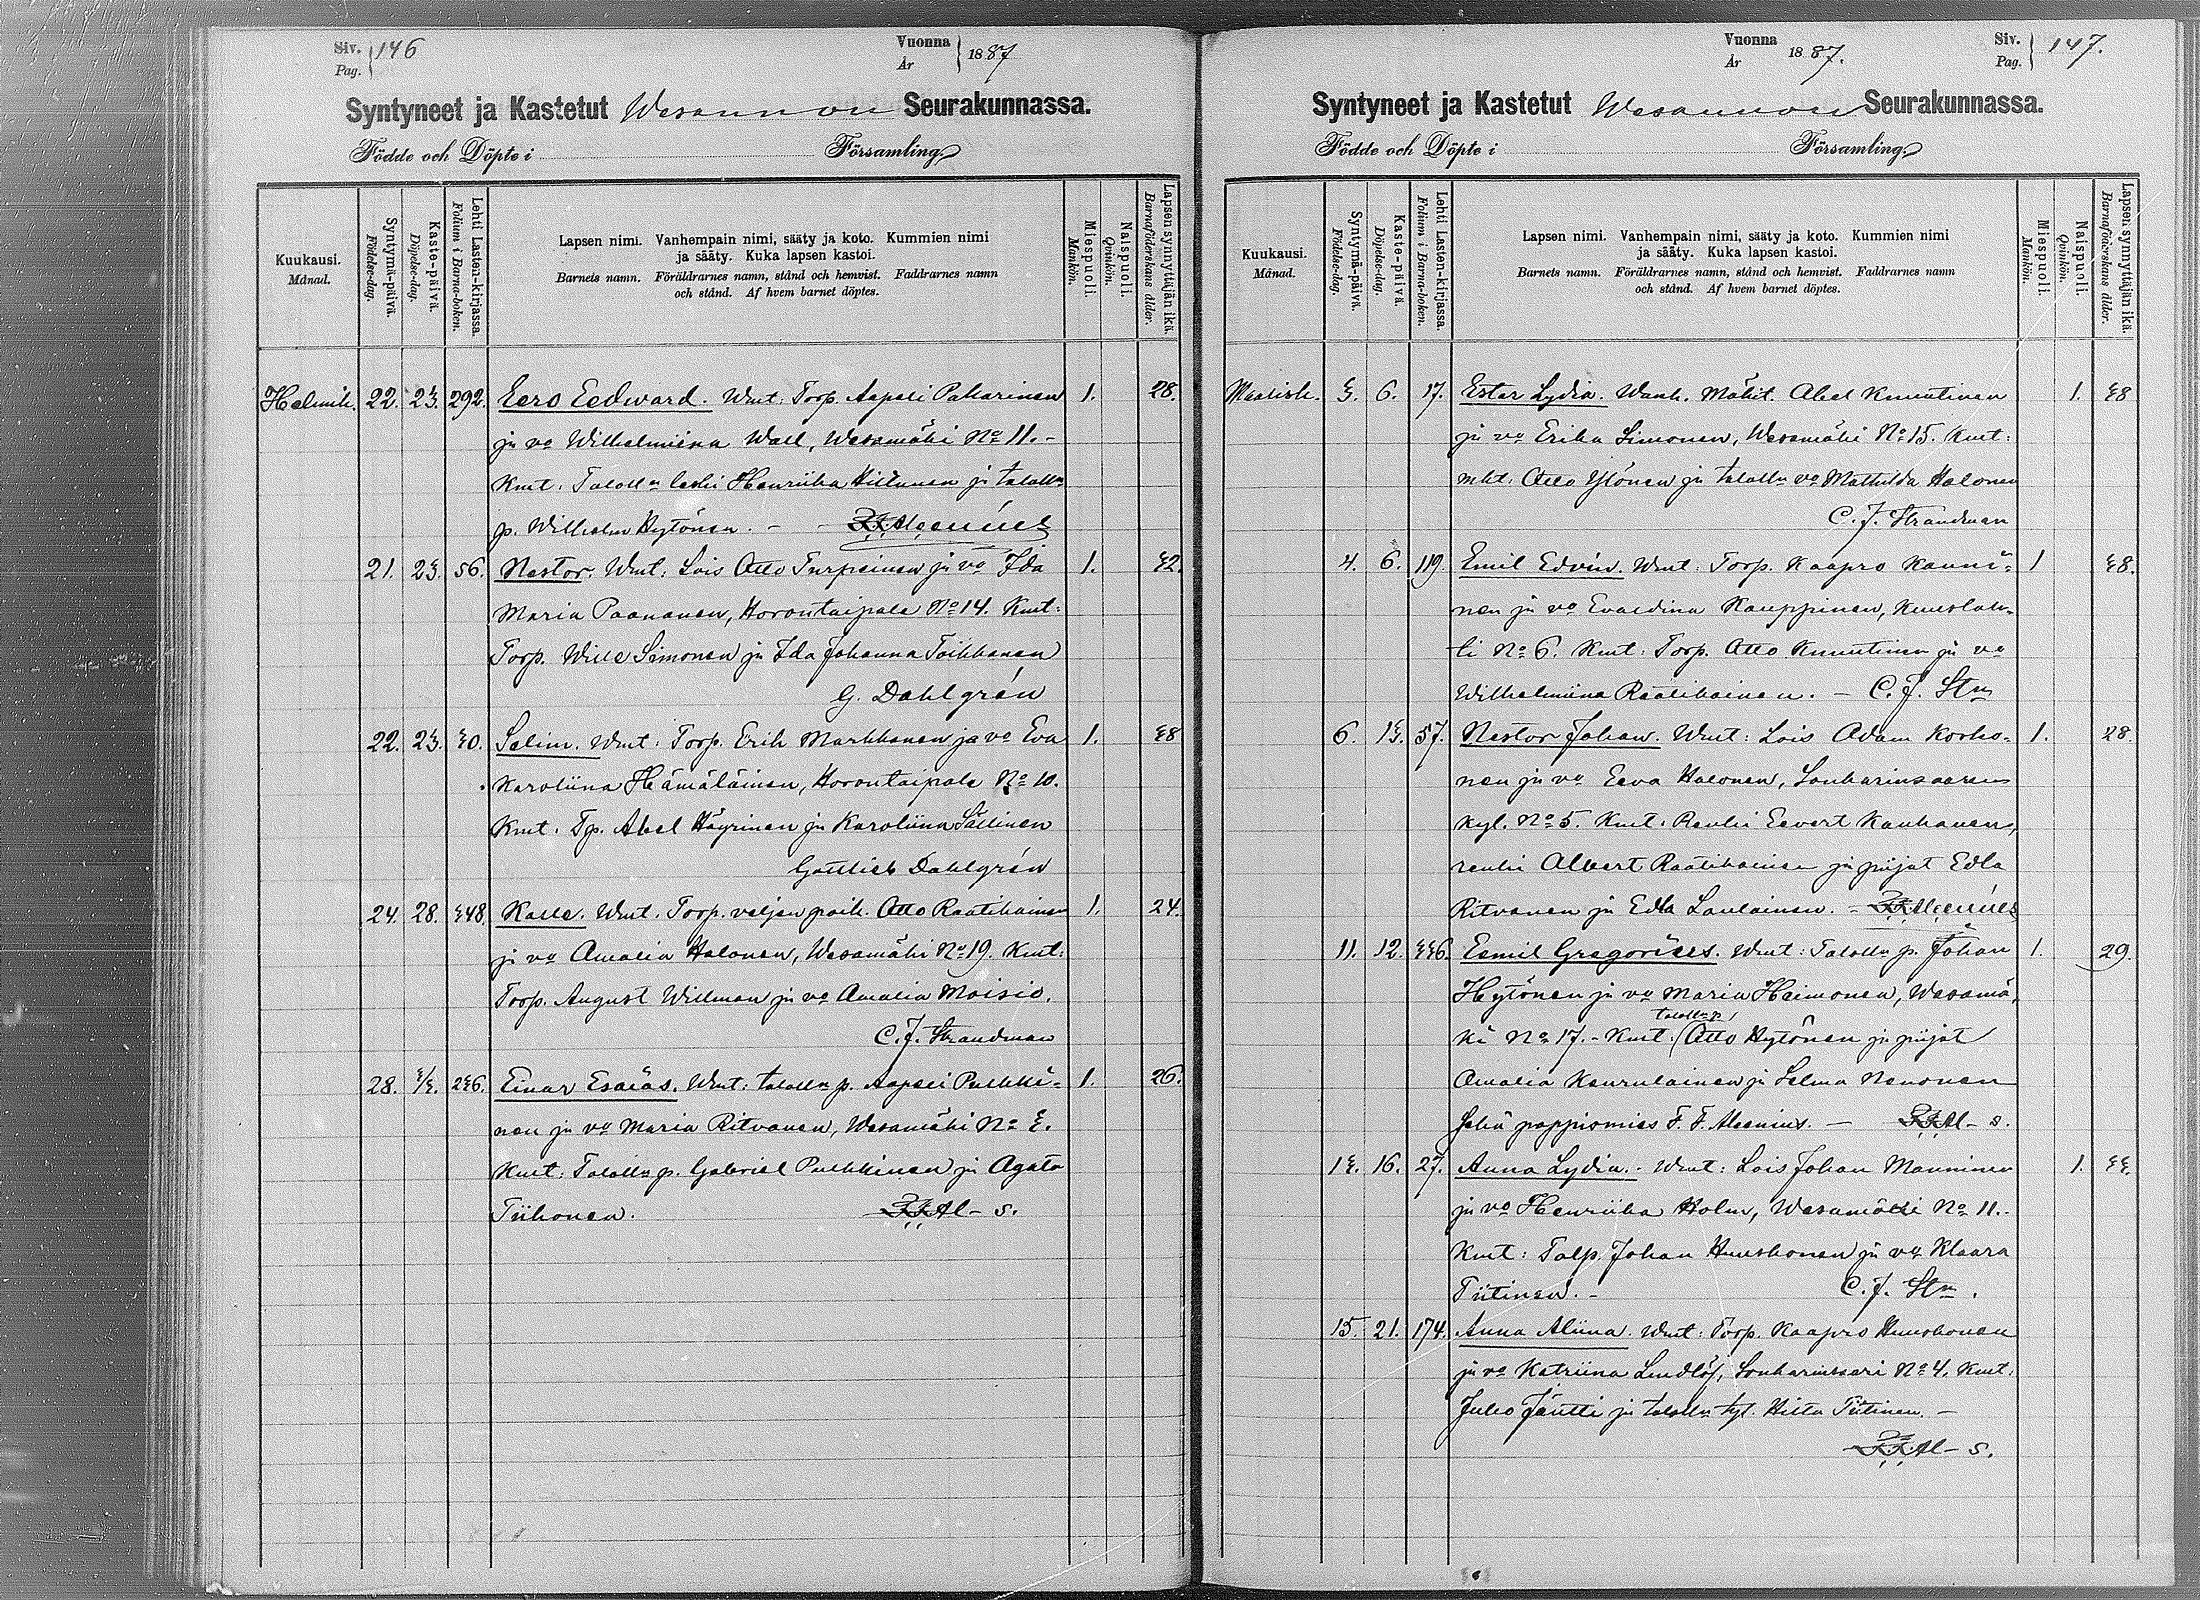 Siv. Pag. 146
Vuonna År 1887
Syntyneet ja Kastetut Wesannon Seurakunnassa.
Födde och Döpte i Församling.
Kuukausi. Månad.
Syntymä-päivä. Födelse-dag.
Kaste-päivä. Döpelse-dag.
Lehti Lasten-kirjassa. Folium i Barna-boken.
Lapsen nimi. Vanhempain nimi, sääty ja koto. Kummien nimi
ja sääty. Kuka lapsen kastoi.
Barnets namn. Föräldrarnes namn, stånd och hemvist. Faddrarnes namn
och stånd. Af hvem barnet döptes.
Miespuoli. Mankön.
Naispuoli. Qvinkön.
Lapsen synnyttäjän ikä. Barnaföderskans ålder.
Helmik. 22. 23. 292. Eero Eedward. Wmt: Torp. Aapeli Pakarinen 1. 28.
ja vo Wilhelmiina Wall, Wesamäki No 11. -
Kmt: Talolln leski Henriika Hiltunen ja talolln
p. Wilhelm Hytönen. - - F.F. Aleenius
21. 23. 56. Nestor. Wmt: Lois Otto Turpeinen ja vo Ida 1. 32.
Maria Paananen, Horontaipale No 14. Kmt:
Torp. Wille Simonen ja Ida Johanna Toikkanen
G. Dahlgrén
22. 23. 30. Selim. Wmt: Torp. Erik Markkanen ja vo Eva 1. 38
Karoliina Hämäläinen, Horontaipale No 10.
Kmt: Tp. Abel Häyrinen ja Karoliina Sällinen
Gottlieb Dahlgrén
24. 28. 348. Kalle. Wmt. Torp. veljen poik. Otto Raatikainen 1. 24.
ja vo Amalia Halonen, Wesamäki No 19. Kmt:
Torp. August Willman ja vo Amalia Moisio.
C. J. Strandman
28. 3/3. 236. Einar Esaias. Wmt: talolln p. Aapeli Pulkki- 1. 26.
nen ja vo Maria Ritvanen, Wesamäki No 3.
Kmt: Talolln p. Gabriel Pulkkinen ja Agata
Tiihonen. F.F. Al - s.
Vuonna År 1887.
Siv. Pag. 147.
Syntyneet ja Kastetut Wesannon Seurakunnassa.
Födde och Döpte i Församling.
Kuukausi. Månad.
Syntymä-päivä. Födelse-dag.
Kaste-päivä. Döpelse-dag.
Lehti Lasten-kirjassa. Folium i Barna-boken.
Lapsen nimi. Vanhempain nimi, sääty ja koto. Kummien nimi
ja sääty. Kuka lapsen kastoi.
Barnets namn. Föräldrarnes namn, stånd och hemvist. Faddrarnes namn
och stånd. Af hvem barnet döptes.
Miespuoli. Mankön.
Naispuoli. Qvinkön.
Lapsen synnyttäjän ikä. Barnaföderskans ålder.
Maalisk. 3. 6. 17. Ester Lydia. Wanh. Mäkit. Abel Knuutinen 1. 38
ja vo Erika Simonen, Wesamäki No 15. Kmt:
mkt: Otto Ylönen ja talolln vo Mathilda Halonen
C. J. Strandman
4. 6. 119. Emil Edvin. Wmt: Torp. Kaapro Kauni- 1 38.
nen ja vo Evaldina Kauppinen, Kuuslah-
ti No 6. Kmt: Torp. Otto Knuutinen ja vo
Wilhelmiina Raatikainen. - C. J. Stm
6. 13. 57. Nestor Johan. Wmt: Lois Adam Korho- 1. 28.
nen ja vo Eeva Halonen, Sonkarinsaaren
kyl. No 5. Kmt: Renki Eevert Kauhanen,
renki Albert Raatikainen ja piijat Edla
Ritvanen ja Edla Laulainen. - F.F. Aleenius
11. 12. 336. Eemil Gregorius. Wmt: Talolln p. Johan 1. 29.
Hytönen ja vo Maria Heimonen, Wesamä-
ki No 17. - Kmt: talolln p. Otto Hytönen ja piijat
Amalia Kaurulainen ja Selma Nenonen
Hätä pappiomies F. F. Aleenius. - F.F. Al - s.
13. 16. 27. Anna Lydia. - Wmt: Lois Johan Manninen 1. 33.
ja vo Henriika Holm, Wesamäki No 11. -
Kmt: Talp. Johan Huuskonen ja vo Klaara
Tiitinen. - C. J. Stm.
15. 21. 174. Anna Aliina. Wmt: Torp. Kaapro Huuskonen
ja vo Katriina Lindlöf, Sonkarinsaari No 4. Kmt:
Juho Jäntti ja talolln tyt. Hilta Tiitinen. -
F.F. Al - s.